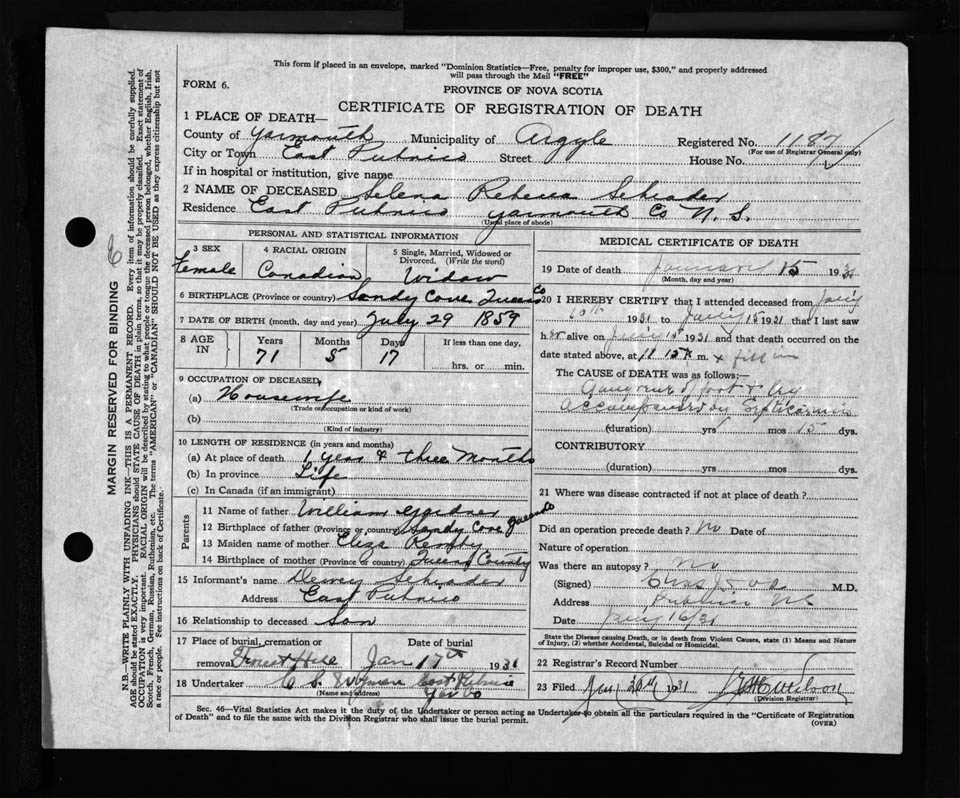 This form if placed in an envelope, marked "Dominion Statistics—Free, penalty for improper use, $300," and properly addressed
will pass through the Mail "FREE"
FORM 6.
PROVINCE OF NOVA SCOTIA
CERTIFICATE OF REGISTRATION OF DEATH
1 PLACE OF DEATH—
County of Yarmouth Municipality of Argyle Registered No. 1187
(For use of Registrar General only)
City or Town East Pubnico Street House No.
If in hospital or institution, give name
2 NAME OF DECEASED Selena Rebecca Schrader
Residence East Pubnico Yarmouth Co N. S.
(Usual place of abode)
PERSONAL AND STATISTICAL INFORMATION
3 SEX Female
4 RACIAL ORIGIN Canadian
5 Single, Married, Widowed or Divorced. (Write the word) Widow
6 BIRTHPLACE (Province or country) Sandy Cove Queens Co
7 DATE OF BIRTH (month, day and year) July 29 1859
8 AGE IN Years 71 Months 5 Days 17 If less than one day, hrs. or min.
9 OCCUPATION OF DECEASED,
(a) Housewife
(Trade or occupation or kind of work)
(b)
(Kind of industry)
10 LENGTH OF RESIDENCE (in years and months)
(a) At place of death 1 year & three Months
(b) In province Life
(c) In Canada (if an immigrant)
Parents
11 Name of father William Gardner
12 Birthplace of father (Province or country) Sandy Cove Queens Co
13 Maiden name of mother Eliza
14 Birthplace of mother (Province or country) Queens County
15 Informant's name Dewey Schrader
Address East Pubnico
16 Relationship to deceased Son
17 Place of burial, cremation or removal Date of burial Jan 17th 1931
18 Undertaker East Pubnico
(Name and address) Yar Co
MEDICAL CERTIFICATE OF DEATH
19 Date of death January 15 1931
(Month, day and year)
20 I HEREBY CERTIFY that I attended deceased from
1931 to Jan'y 15 1931 that I last saw
her alive on 1931 and that death occurred on the
date stated above, at 11.15 m.
The CAUSE of DEATH was as follows:—
Gangrene of foot & leg
accompanied by Septicaemia
(duration) yrs mos 15 dys.
CONTRIBUTORY
(duration) yrs mos dys.
21 Where was disease contracted if not at place of death?
Did an operation precede death? No Date of
Nature of operation
Was there an autopsy? No
(Signed) M.D.
Address Pubnico NS
Date Jan'y 16/31
State the Disease causing Death, or in death from Violent Causes, state (1) Means and Nature
of Injury, (2) whether Accidental, Suicidal or Homicidal.
22 Registrar's Record Number
23 Filed 1931
(Division Registrar)
Sec. 46—Vital Statistics Act makes it the duty of the Undertaker or person acting as Undertaker to obtain all the particulars required in the "Certificate of Registration
of Death" and to file the same with the Division Registrar who shall issue the burial permit.
(OVER)
MARGIN RESERVED FOR BINDING
N.B.—WRITE PLAINLY WITH UNFADING INK—THIS IS A PERMANENT RECORD. Every item of information should be carefully supplied.
AGE should be stated EXACTLY. PHYSICIANS should STATE CAUSE OF DEATH in plain terms, so that it may be properly classified. Exact statement of
OCCUPATION is very important. RACIAL ORIGIN will be described by stating to what people or tongue the deceased person belonged, whether English, Irish,
Scotch, French, German, Russian, Ruthenian, etc. The terms "AMERICAN" or "CANADIAN" SHOULD NOT BE USED as they express citizenship but not
a race or people. Fee instructions on back of Certificate.